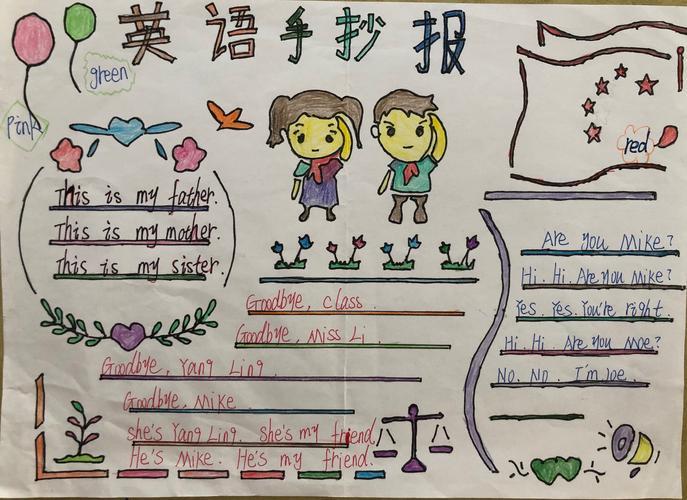 英语手抄报
green
pink
red
This is my father.
This is my mother.
This is my sister.
Goodbye, class.
Goodbye, Miss Li.
Goodbye, Yang Ling.
Goodbye, Mike
she's Yang Ling. She's my friend.
He's Mike. He's my friend.
Are you Mike?
Hi. Hi. Are you Mike?
Yes. Yes. You're right.
Hi. Hi. Are you Moe?
No. No. I'm Joe.